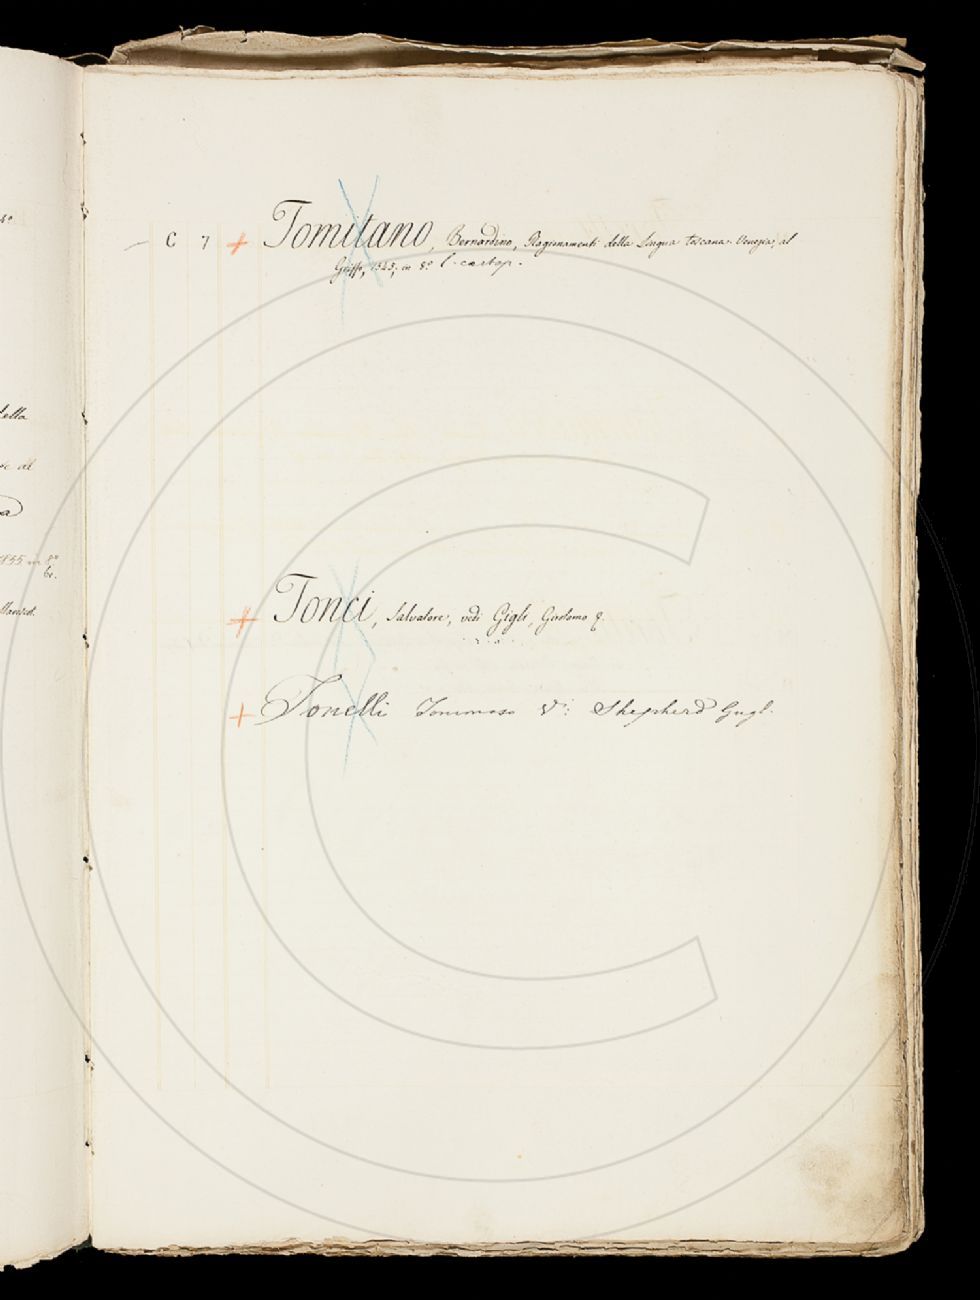 4º
della
al
a
1855. in 8º
br.
C 7 Tomitano, Bernardino, Ragionamenti della lingua toscana. Venezia, al
Griffo, 1545, in 8º l. cartap.
Tonci, Salvatore, vedi Gigli, Girolamo
Tonelli Tommaso Vi: Shepherd Gugl.